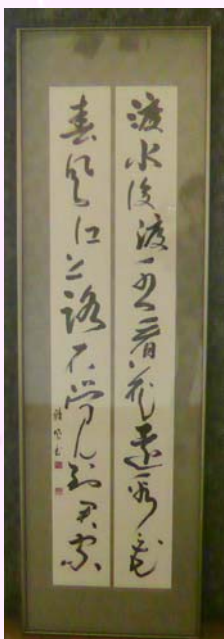 渡水復渡水看花還看花
春風江上路不覺到君家